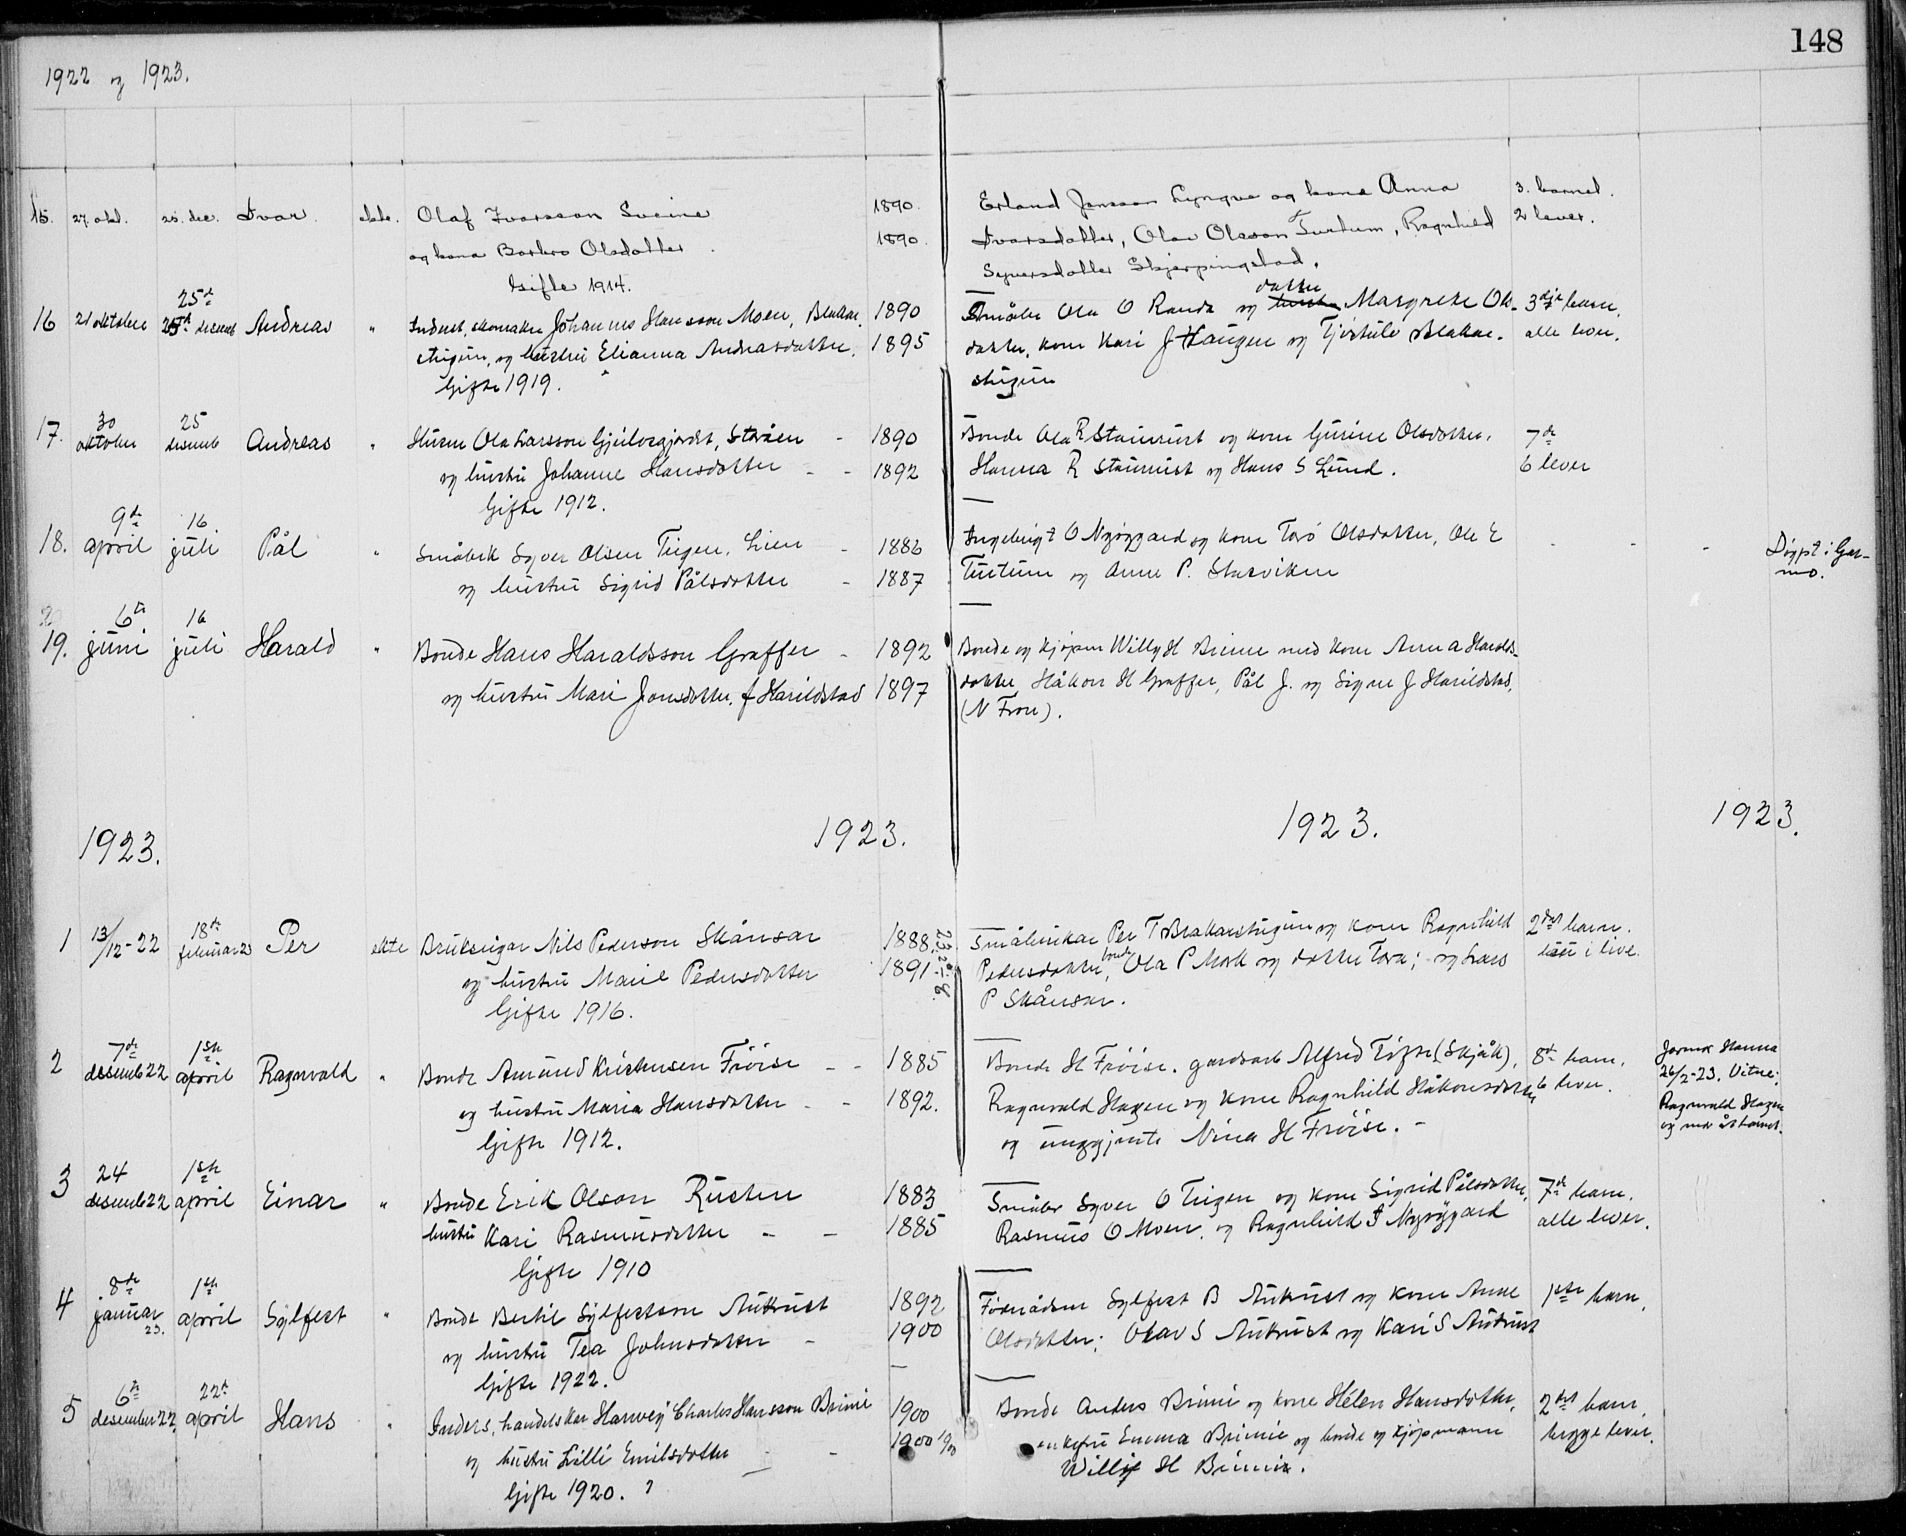 148
1922 og 1923.
15. 27. okt. 25. dec. Ivar. ekte. Olaf Ivarsson Sveine 1890.
og kona Barbro Olsdotter. 1890.
Gifte 1914.
Erland Jonsson Lyngve og kona Anna
Ivarsdotter, Olav Olsson Turtum, Ragnhild
Syversdotter Skjerpingstad.
3. barnet.
2 lever.
16 21 oktober 25de desemb Andreas " Johannes Hansson Moen, Blakar. 1890
stugun, og hustru Elianna Andreasdotter. 1895
Gifte 1919.
Småbr Ola O Randa og dotter Margrete Ols-
dotter, kone Kari J Haugen og Tjøstulv Blakar-
stugun
3dje barn,
alle lever.
17. 30 oktober 25 desemb Andreas " Husm Ola Larsson Gjeilogjordet, Stråen - 1890
og hustru Johanne Hansdotter - - 1892
Gifte 1912.
Bonde Ola R Stamrust og kone Gurine Olsdotter.
Hanna R Stamrust og Hans S Lund.
7de
6 lever
18. 9de april 16 juli Pål " Småbruk Syver Olsen Teigen, Lien - 1886
og hustru Sigrid Pålsdotter - 1887
Ingebrigt O Nyøygard og kone Tora Olsdotter, Ole E
Turtum og Anne P. Storviken
Døypt i Gar-
mo.
19. 6te juni 16 juli Harald " Bonde Hans Haraldsson Graffer - 1892
og hustru Mari Jonsdotter. f Harildstad 1897
Bonde og kjøpm Willy H Brimi med kone Anna Haralds-
dotter, Håkon H Graffer, Pål J. og Signe J Harildstad,
(N Fron).
1923. 1923. 1923. 1923.
1 13/12-22 18de februar 23 Per ekte Brukseigar Nils Pederson Skånsar 1888
og hustru Marie Pedersdotter 1891
Gifte 1916.
Småbrukar Per T Blakarstugun og kone Ragnhild
Pedersdotter, bonde Ola P Mork og dotter Tora; og Lars
P Skånsar.
2det barn.
i live.
2 7de desemb 22 1ste april Ragnvald " Bonde Amund Kristensen Frøise - - 1885
og hustru Maria Hansdotter - - 1892.
Gifte 1912.
Bonde H Frøise. gardsarb Alfred Tøfte (Skjåk),
Ragnvald Hagen og kone Ragnhild Håkonsdotter
og unggjente Nina H Frøise. -
8de barn.
6 lever.
26/2-23. Vitne:
Ragnvald Hagen
3 24 desemb 22 1ste april Einar " Bonde Erik Olson Rusten 1883
hustru Kari Rasmusdotter - - 1885
Gifte 1910
Småbr Syver O Teigen og kone Sigrid Pålsdotter,
Rasmus O Moen. og Ragnhild Nyøygard
7de barn.
alle lever.
4 8de januar 23. 1ste april Sylfest " Bonde Bertil Sylfestson Aukrust 1892
og hustru Tea Johnsdotter - 1900
Gifte 1922.
Føderådsm Sylfest B Aukrust og kone Anne
Olsdotter; Olav S Aukrust og Kari S Aukrust
1ste barn.
5 6te desember 22. 22de april Hans " handelskar Harvey Charles Hansson Brimi 1900
og hustru Lilli Emilsdotter - - 1900
Gifte 1920. ?
Bonde Anders Brimi og kone Helen Hansdotter,
enkefru Emma Brimi og bonde og kjøpmann
Willy H Brimi.
2det barn,
begge lever.